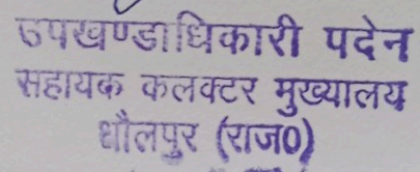 उपखण्डाधिकारी पदेन
सहायक कलक्टर मुख्यालय
धौलपुर (राज0)